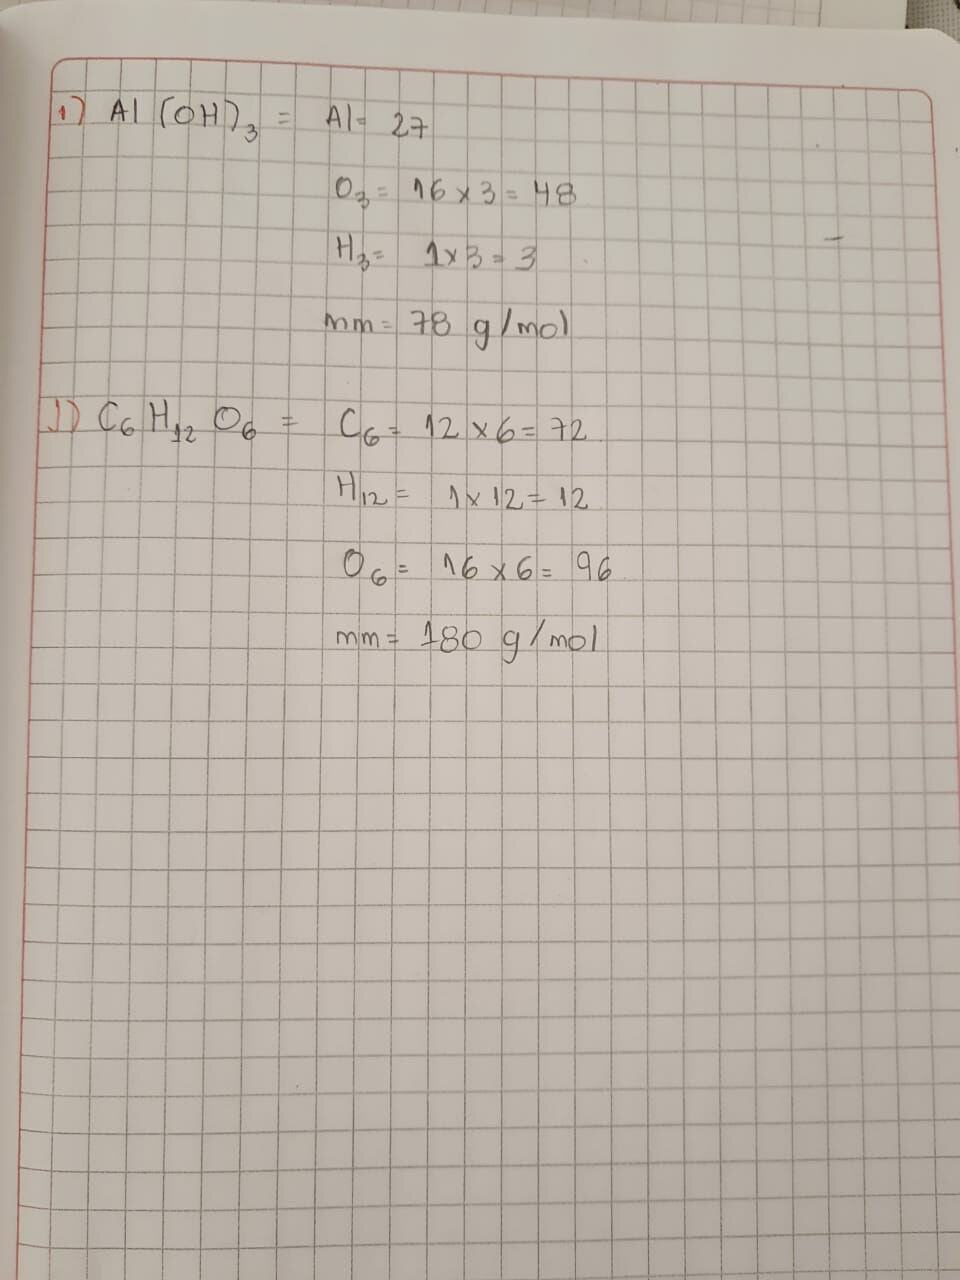 i) Al(OH)₃ = Al = 27
O₃ = 16 x 3 = 48
H₃ = 1 x 3 = 3
mm = 78 g/mol
J) C₆ H₁₂ O₆ = C₆ = 12 x 6 = 72
H₁₂ = 1 x 12 = 12
O₆ = 16 x 6 = 96
mm = 180 g/mol